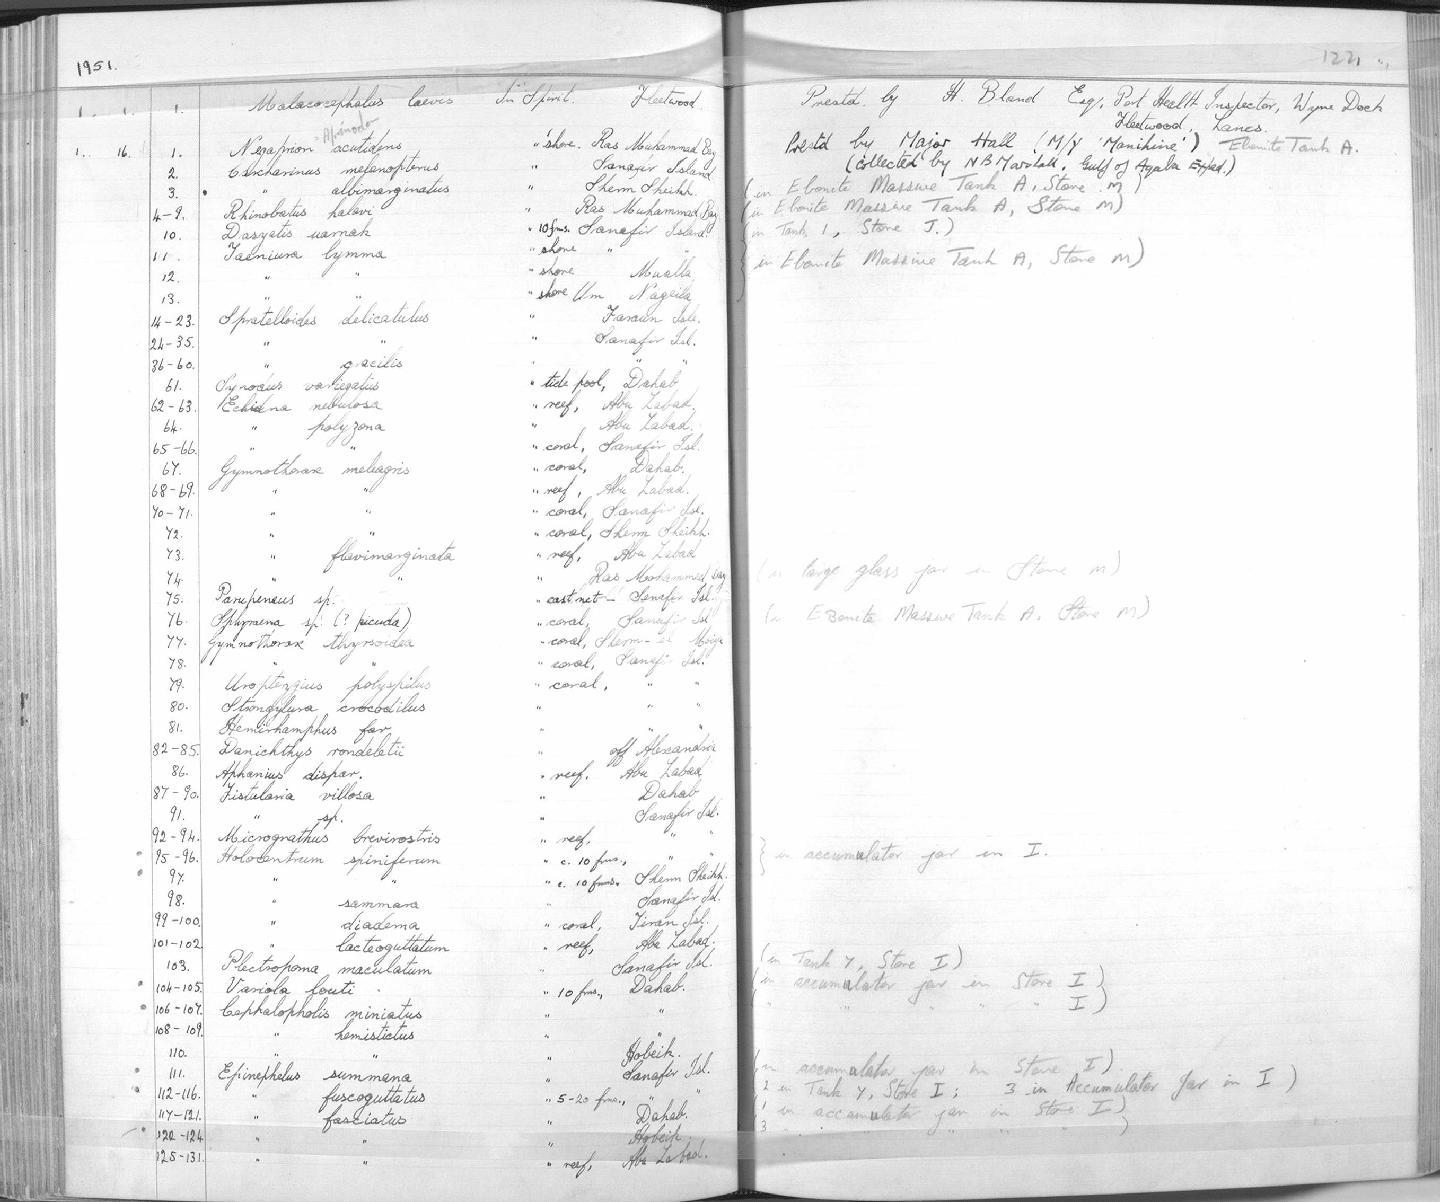 1951.
1221
1. 1. 1. Malacocephalus laevis In Spirit. Fleetwood. Prestd. by H. Bland Esq, Port Health Inspector, Wyre Dock
Fleetwood, Lancs.
1. 16. 1. Negaprion acutidens " shore. Ras Muhammad Bay Prestd by Major Hall (M/Y 'Manihine') Ebonite Tank A.
2. Carcharinus melanopterus " Sanafir Island (collected by NB Marshall, Gulf of Aqaba Exped.)
3. " albimarginatus " Sherm Sheikh. (in Ebonite Massive Tank A, Store M)
4-9. Rhinobatus halavi " Ras Muhammad Bay (in Ebonite Massive Tank A, Store M)
10. Dasyatis uarnak " 10 fms. Sanafir Island. (in Tank 1, Store J.)
11. Taeniura lymma " shore " " in Ebonite Massive Tank A, Store M)
12. " " " shore Mualla
13. " " " shore Um Nageila
14-23. Spratelloides delicatulus " Faraun Isl.
24-35. " " " Sanafir Isl.
36-60. " gracilis " " "
61. Synodus variegatus " tide pool, Dahab
62-63. Echidna nebulosa " reef, Abu Zabad.
64. " polyzona " Abu Zabad.
65-66. " " " coral, Sanafir Isl.
67. Gymnothorax meleagris " coral, Dahab.
68-69. " " " reef, Abu Zabad.
70-71. " " " coral, Sanafir Isl.
72. " " " coral, Sherm Sheikh.
73. " flavimarginata " reef, Abu Zabad
74. " " " Ras Mohammed Bay (in large glass jar in Store M)
75. Parupeneus sp. " cast net - Sanafir Isl.
76. Sphyraena sp. (? picuda) " coral, Sanafir Isl (in Ebonite Massive Tank A, Store M)
77. Gymnothorax thyrsoidea " coral, Sherm-el Moiya
78. " " " coral, Sanafir Isl.
79. Uropterygius polyspilus " coral, " "
80. Strongylura crocodilus " " "
81. Hemirhamphus far " " "
82-85. Danichthys rondeletii " off Alexandria
86. Aphanius dispar. " reef. Abu Zabad
87-90. Fistularia villosa " Dahab
91. " sp. " Sanafir Isl.
92-94. Micrognathus brevirostris " reef. " "
95-96. Holocentrum spiniferum " c. 10 fms., " " } in accumulator jar in I.
97. " " " c. 10 fms. Sherm Sheikh.
98. " sammara " Sanafir Isl.
99-100. " diadema " coral, Tiran Isl.
101-102. " lacteoguttatum " reef, Abu Zabad.
103. Plectropoma maculatum " Sanafir Isl. (in Tank Y, Store I)
104-105. Variola louti " 10 fms., Dahab. (in accumulator jar in Store I)
106-107. Cephalopholis miniatus " " ( " " " " I)
108-109. " hemistictus " "
110. " " " Hobeik.
111. Epinephelus summana " Sanafir Isl. (in accumulator jar in Store I)
112-116. " fuscoguttatus " 5-20 fms., " " 2 in Tank Y, Store I; 3 in Accumulator Jar in I)
117-121. " fasciatus " Dahab. 1 in accumulator jar in Store I)
122-124 " " " Hobeik. 3 " " " " )
125-131. " " " reef, Abu Zabad.